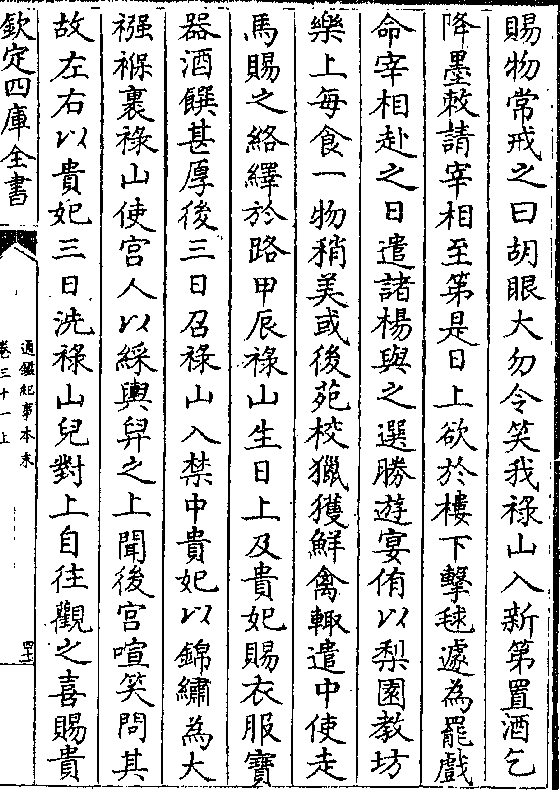 賜物常戒之曰胡眼大勿令笑我祿山入新第置酒乞
降墨敕請宰相至第是日上欲於樓下擊毬遽為罷戲
命宰相赴之日遣諸楊與之選勝遊宴侑以梨園教坊
樂上每食一物稍美或後苑校獵獲鮮禽輙遣中使走
馬賜之絡繹於路甲辰祿山生日上及貴妃賜衣服寶
器酒饌甚厚後三日召祿山入禁中貴妃以錦繡為大
襁褓裹祿山使宮人以綵輿舁之上聞後宮喧笑問其
故左右以貴妃三日洗祿山兒對上自往觀之喜賜貴
欽定四庫全書
通鑑紀事本末
卷三十一上